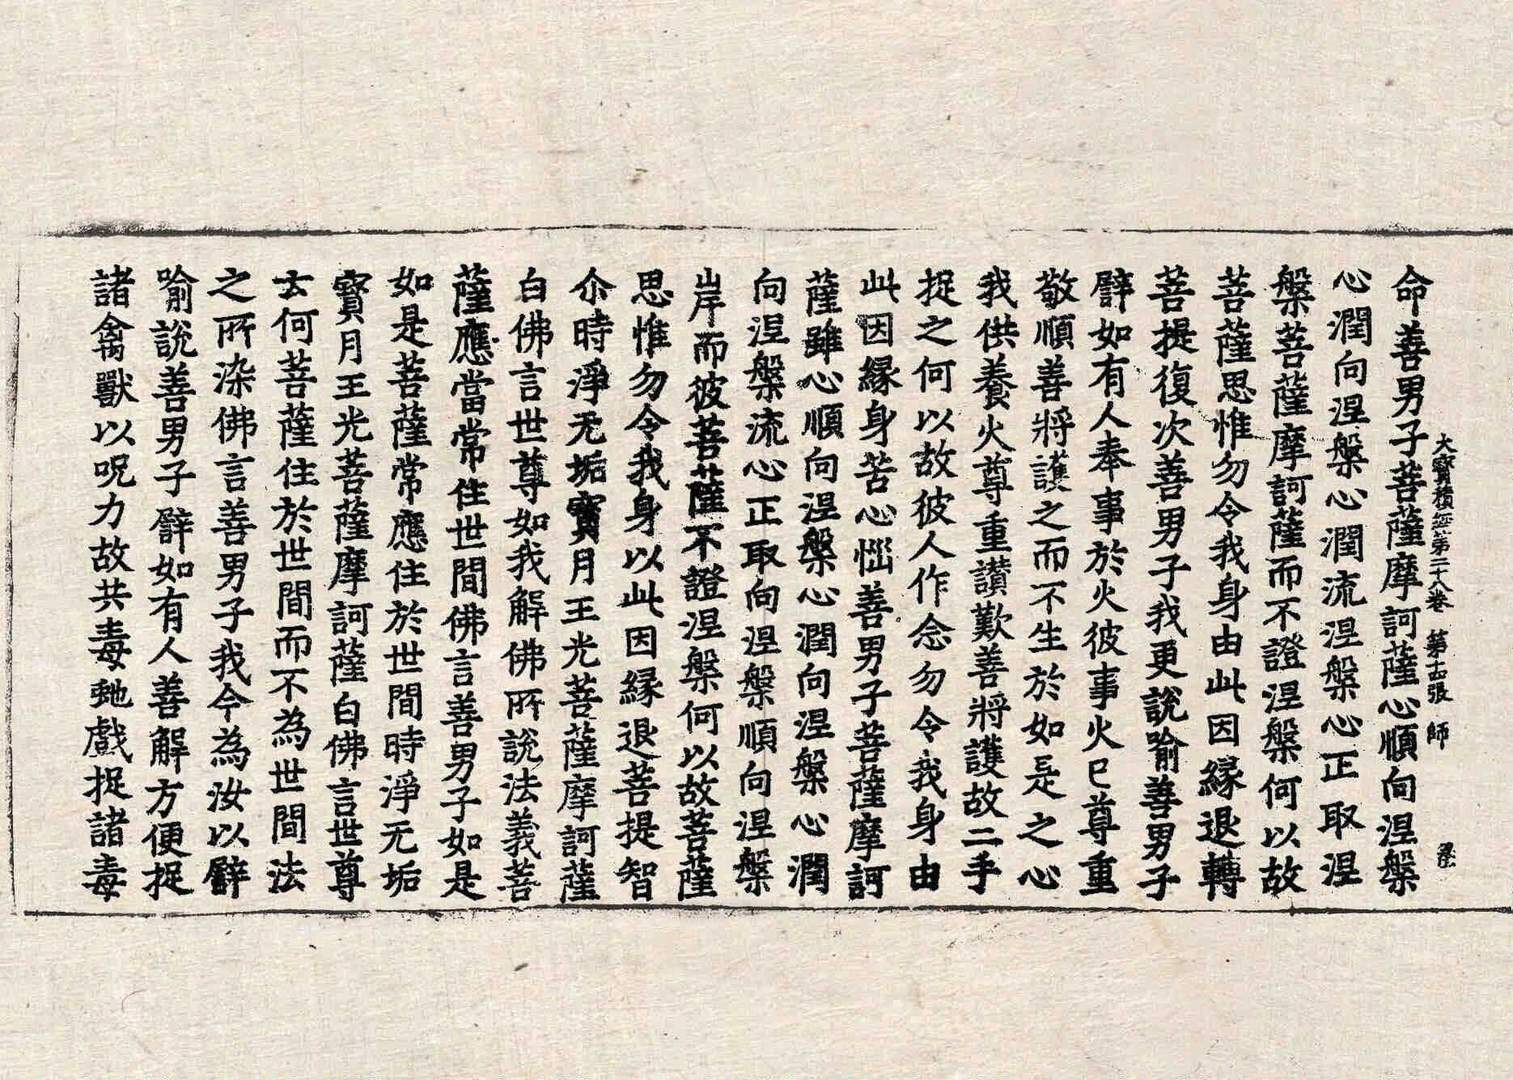 大寶積經第二十八卷　第十四張　師
命善男子菩薩摩訶薩心順向涅槃
心潤向涅槃心潤流涅槃心正取涅
槃菩薩摩訶薩而不證涅槃何以故
菩薩思惟勿令我身由此因縁退轉
菩提復次善男子我更說喻善男子
譬如有人奉事於火彼事火已尊重
敬順善將護之而不生於如是之心
我供養火尊重讃歎善將護故二手
捉之何以故彼人作念勿令我身由
此因縁身苦心惱善男子菩薩摩訶
薩雖心順向涅槃心潤向涅槃心潤
向涅槃流心正取向涅槃順向涅槃
岸而彼菩薩不證涅槃何以故菩薩
思惟勿令我身以此因縁退菩提智
尒時淨无垢寶月王光菩薩摩訶薩
白佛言世尊如我解佛所說法義菩
薩應當常住世間佛言善男子如是
如是菩薩常應住於世間時淨无垢
寶月王光菩薩摩訶薩白佛言世尊
云何菩薩住於世間而不為世間法
之所染佛言善男子我今為汝以譬
喻說善男子譬如有人善解方便捉
諸禽獸以呪力故共毒虵戲捉諸毒